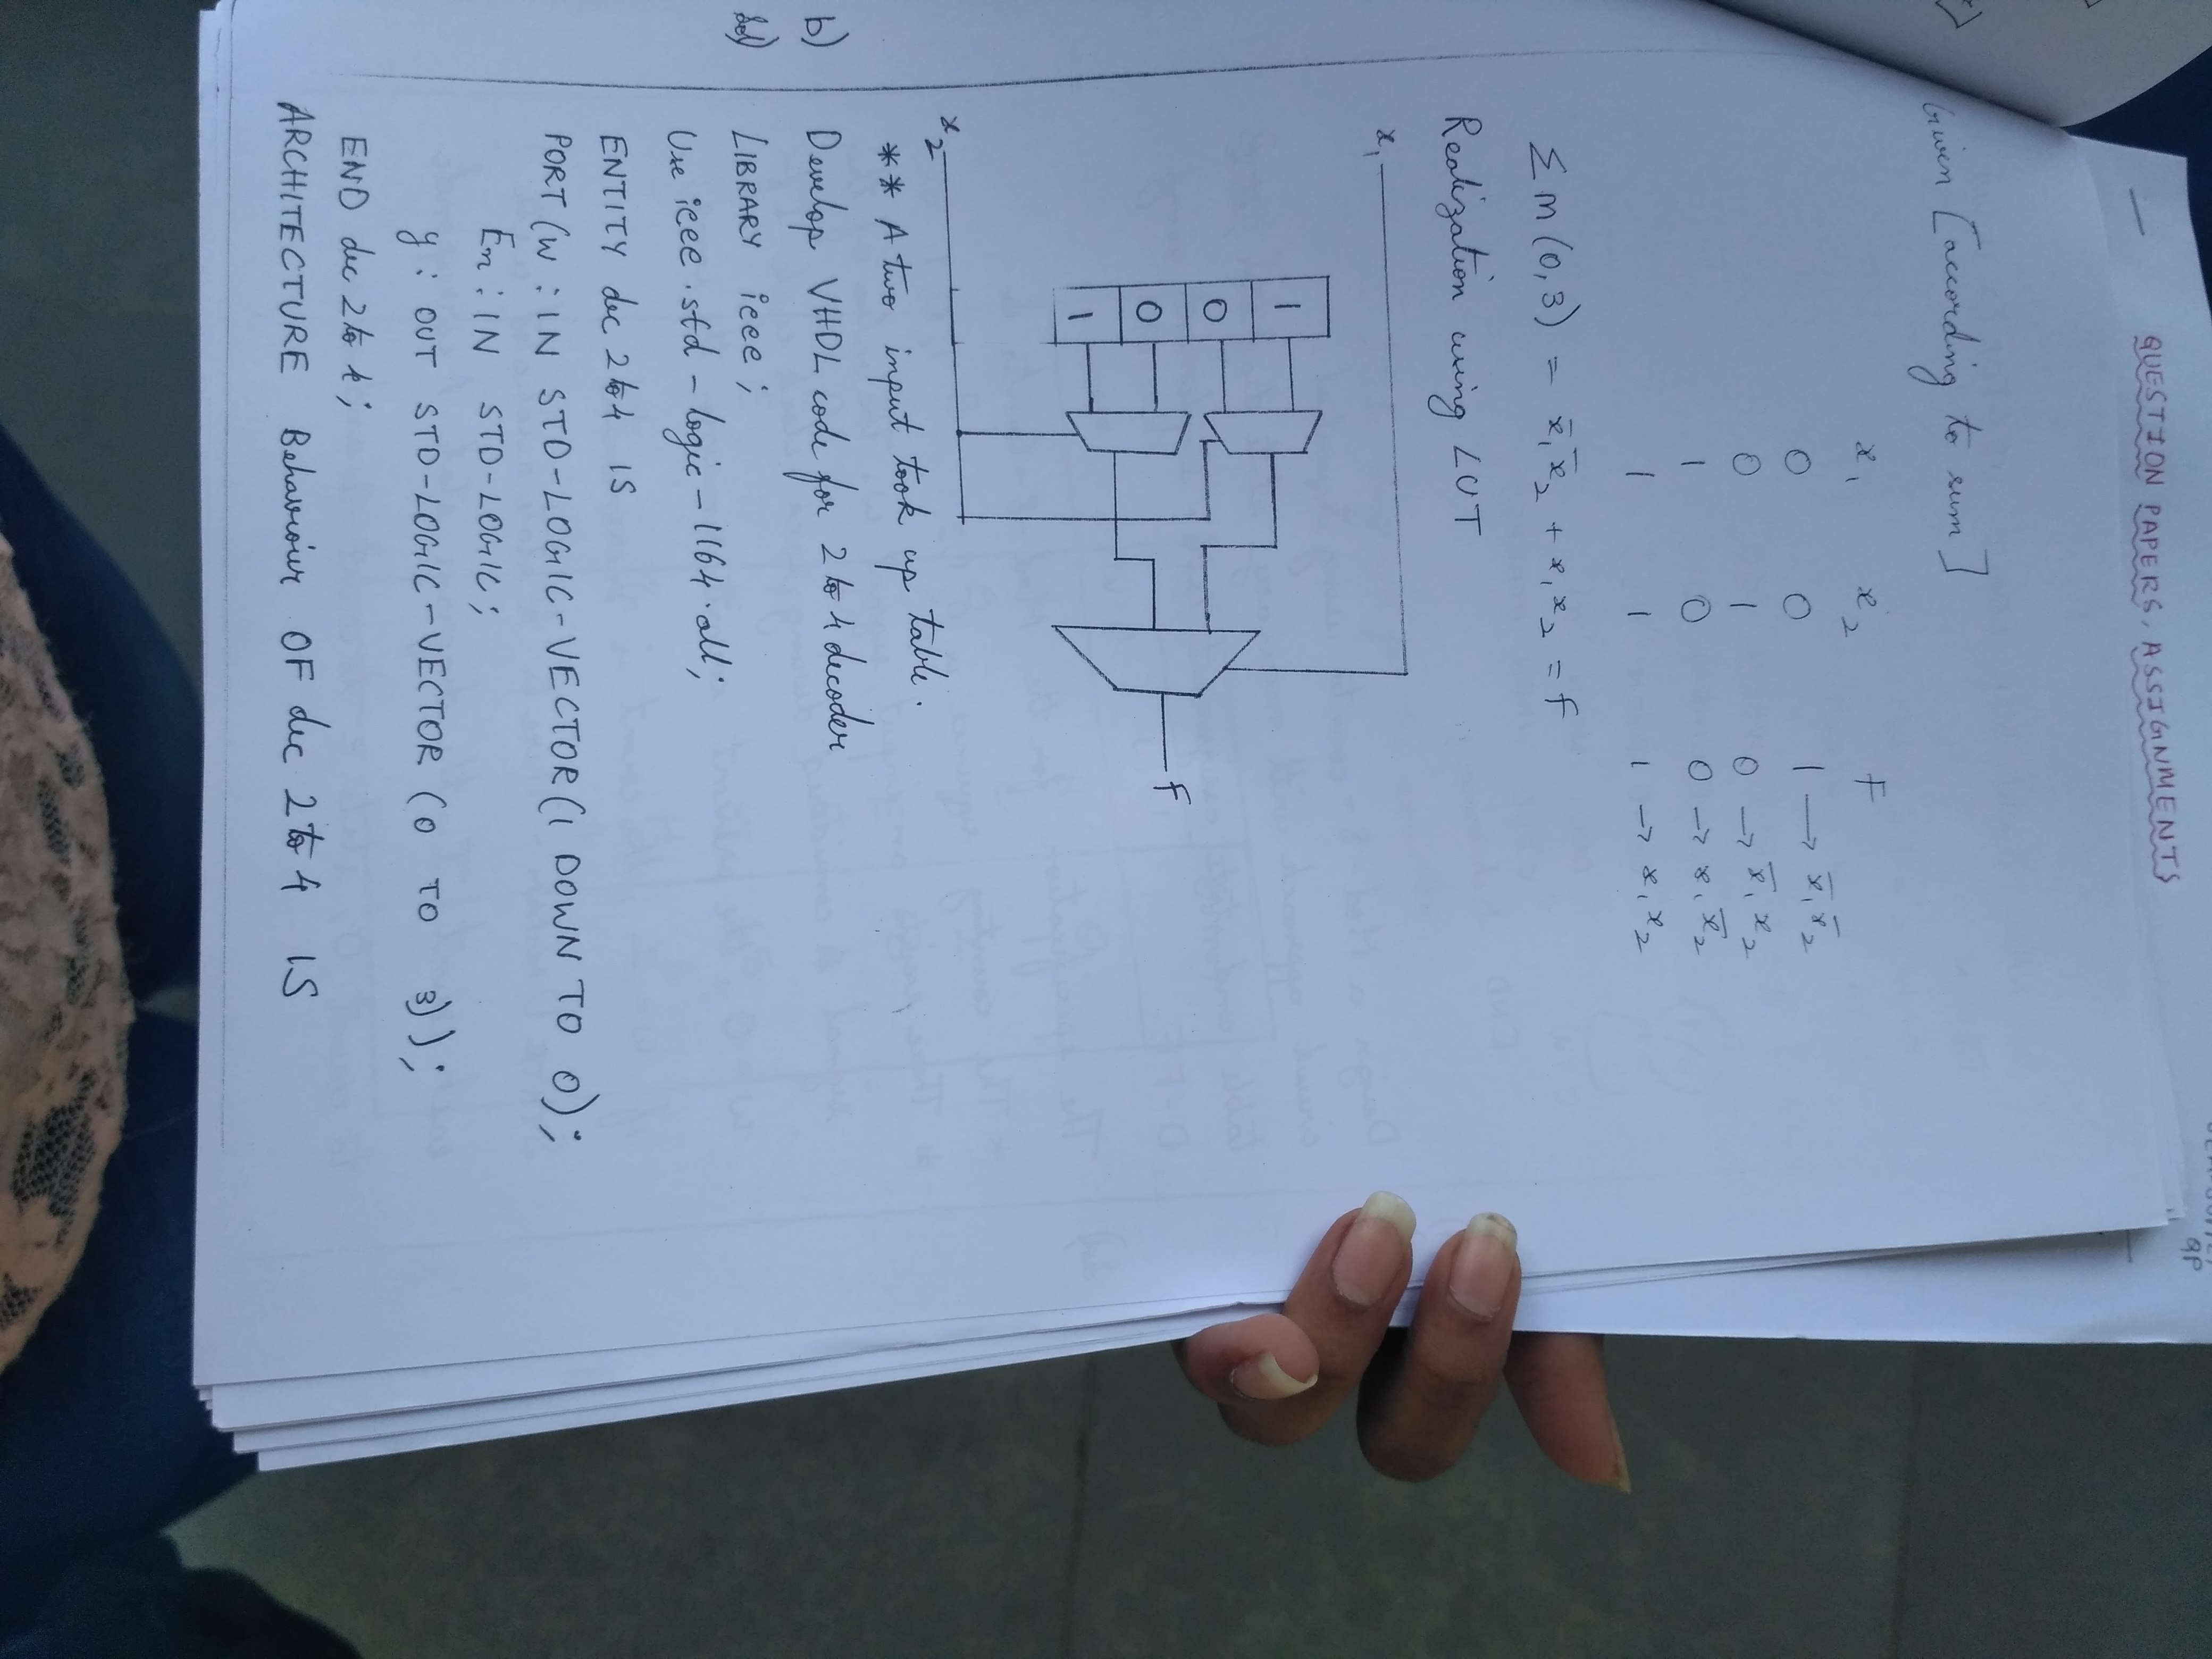 QUESTION PAPERS, ASSIGNMENTS
Given [according to sum]
x₁ x₂ F
0 0 1 → x̄₁x̄₂
0 1 0 → x̄₁x₂
1 0 0 → x₁x̄₂
1 1 1 → x₁x₂
∑m(0,3) = x̄₁x̄₂ + x₁x₂ = f
Realization using LUT
x₁
1
0
0
1
F
x₂
** A two input took up table.
b) Develop VHDL code for 2 to 4 decoder
Sol) LIBRARY ieee;
Use ieee.std-logic-1164.all;
ENTITY dec 2 to 4 IS
PORT (w : IN STD-LOGIC-VECTOR (1 DOWN TO 0);
En : IN STD-LOGIC;
y : OUT STD-LOGIC-VECTOR (0 TO 3));
END dec 2 to 4;
ARCHITECTURE Behaviour OF dec 2 to 4 IS